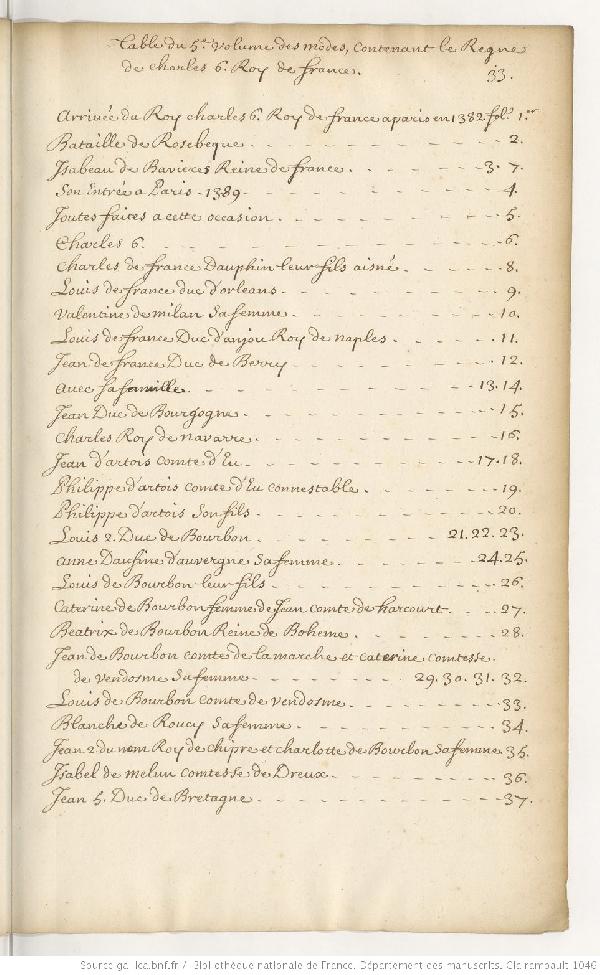 Table du 5e. volume des modes, contenant le Regne
de charles 6. Roy de france.
33.
Arrivée du Roy charles 6. Roy de france a paris en 1382. fol. 1er
Bataille de Rosebeque - - - 2.
Isabeau de Bavieres Reine de france - - - 3. 7.
Son Entrée a Paris - 1389 - - - 4.
Joutes faites a cette occasion - - - 5.
Charles 6. - - - 6.
Charles de france Dauphin leur fils aisné - - - 8.
Louis de france duc d'orleans - - - 9.
Valentine de milan Sa femme - - - 10.
Louis de france Duc d'anjou Roy de naples - - - 11.
Jean de france Duc de Berry - - - 12.
avec sa famille - - - 13. 14.
Jean Duc de Bourgogne - - - 15.
Charles Roy de navarre - - - 16.
Jean d'artois comte d'Eu - - - 17. 18.
Philippe d'artois comte d'Eu connestable - - - 19.
Philippe d'artois Son fils - - - 20.
Louis 2. Duc de Bourbon - - - 21. 22. 23.
Anne Daufine d'auvergne Sa femme - - - 24. 25.
Louis de Bourbon leur fils - - - 26.
Caterine de Bourbon femme de Jean comte de harcourt - - - 27.
Beatrix de Bourbon Reine de Boheme - - - 28.
Jean de Bourbon comte de la marche et caterine comtesse
de vendosme Sa femme - - - 29. 30. 31. 32.
Louis de Bourbon comte de vendosme - - - 33.
Blanche de Roucy Sa femme - - - 34.
Jean 2 du nom Roy de chipre et charlotte de Bourbon Sa femme 35.
Isabel de melun comtesse de Dreux - - - 36.
Jean 5. Duc de Bretagne - - - 37.
Source gallica.bnf.fr / Bibliothèque nationale de France. Département des manuscrits. Clairambault 1046